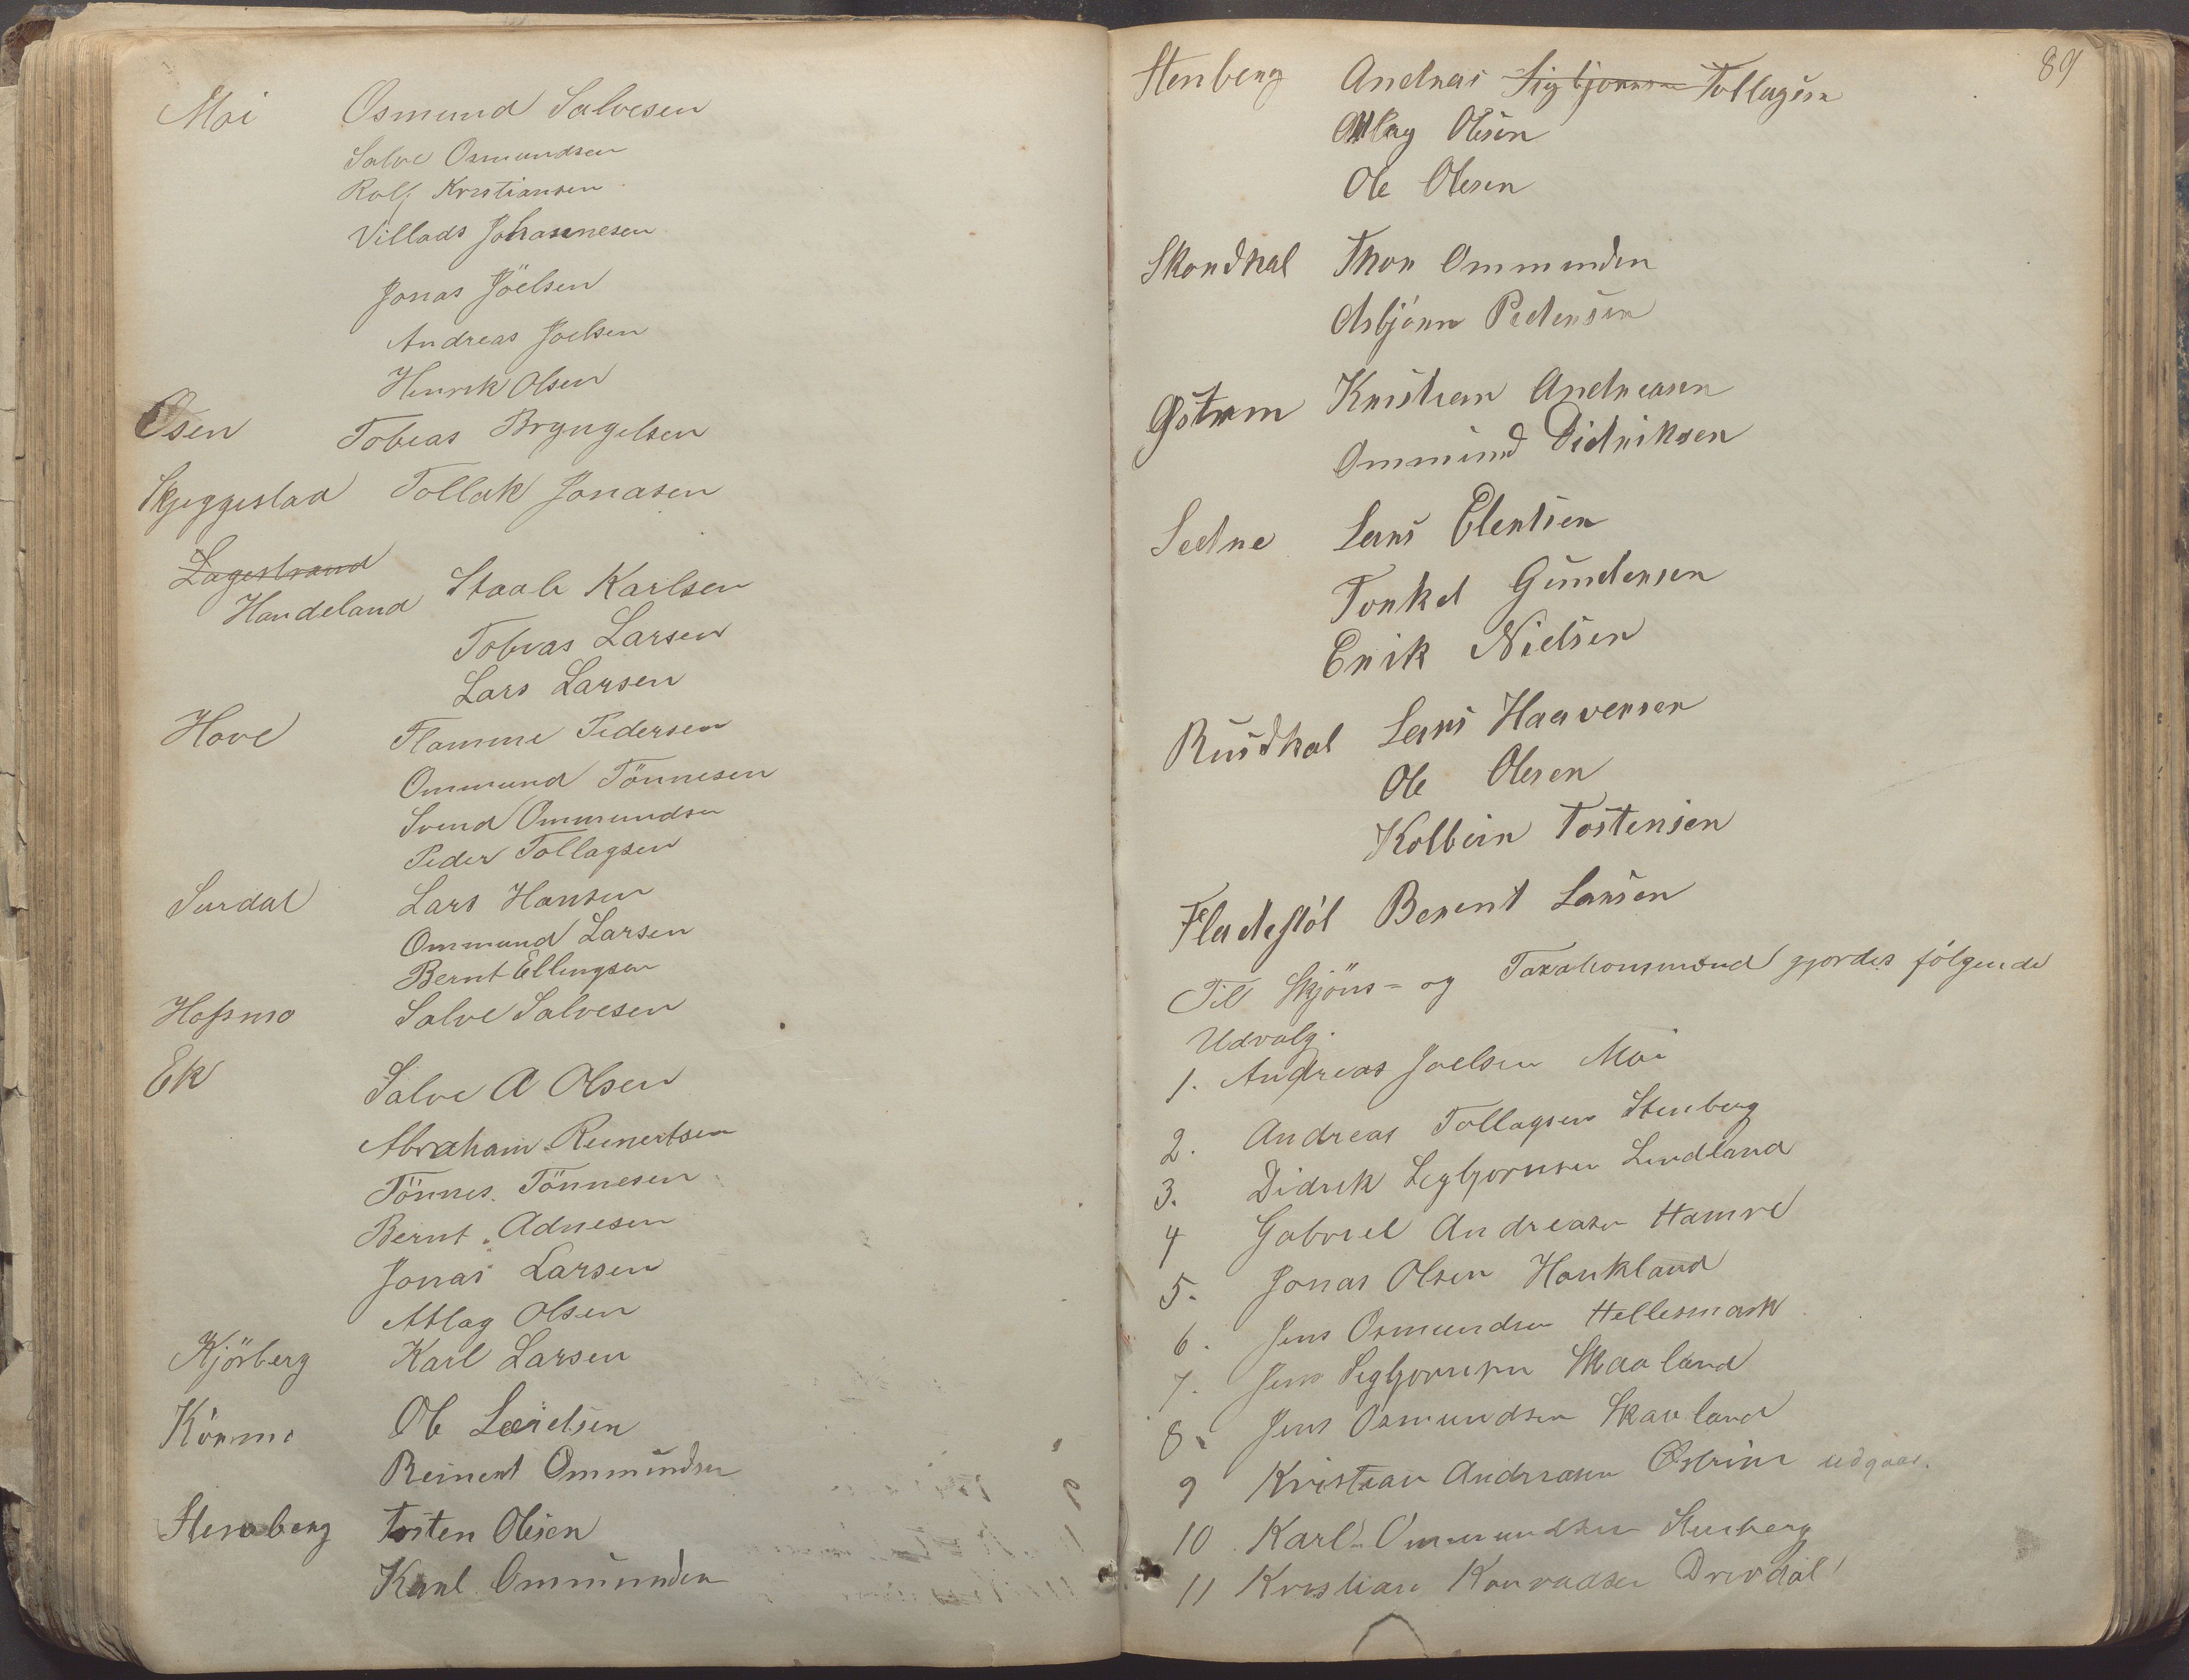 Moi Osmund Salvesen
Salve Osmundsen
Rolf Kristiansen
Villads Johannesen
Jonas Jöelsen
Andreas Joelsen
Henrik Olsen
Osen Tobias Bryngelsen
Skjeggestad Tollak Jonasen
Lagestrand
Handeland Staale Karlsen
Tobias Larsen
Lars Larsen
Hove Tlamme Pedersen
Ommund Tönnesen
Svend Ommundsen
Peder Tollagsen
Surdal Lars Hansen
Ommund Larsen
Bernt Ellingsen
Hofsmo Salve Salvesen
Ek Salve A Olsen
Abraham Reinertsen
Tönnes Tönnesen
Bernt Adnesen
Jonas Larsen
Atlag Olsen
Kjörberg Karl Larsen
Körmo Ole
Reinert Ommundsen
Stenberg Tosten Olesen
Karl Ommunden
89
Stenberg Andreas Sigbjornsen Tollagsen
Atlag Olesen
Ole Olesen
Skordhal Thor Ommunden
Asbjörn Pedersen
Østrem Kristian Andreasen
Ommund Didriksen
Sedne Lars Elertsen
Torkel Gundersen
Erik Nielsen
Rusdhal Lars Haaversen
Ole Olesen
Kolbein Tostensen
Fladestöl Berent Larsen
Til Skjöns- og Taxationsmænd gjordes fölgende
Udvalg.
1. Andreas Joelsen Moi
2. Andreas Tollagsen Stenberg
3. Didrik Segbjornsen Lindland
4 Gabriel Andreasen Hamre
5. Jonas Olsen Haukland
6. Jens Osmundsen Hellesmark
7. Jens Segbjornsen Skaaland
8. Jens Osmundsen Skaaland
9 Kristian Andreasen Østrem udgaar.
10. Karl Ommundsen Stenberg
11 Kristian Konradsen Drivdal